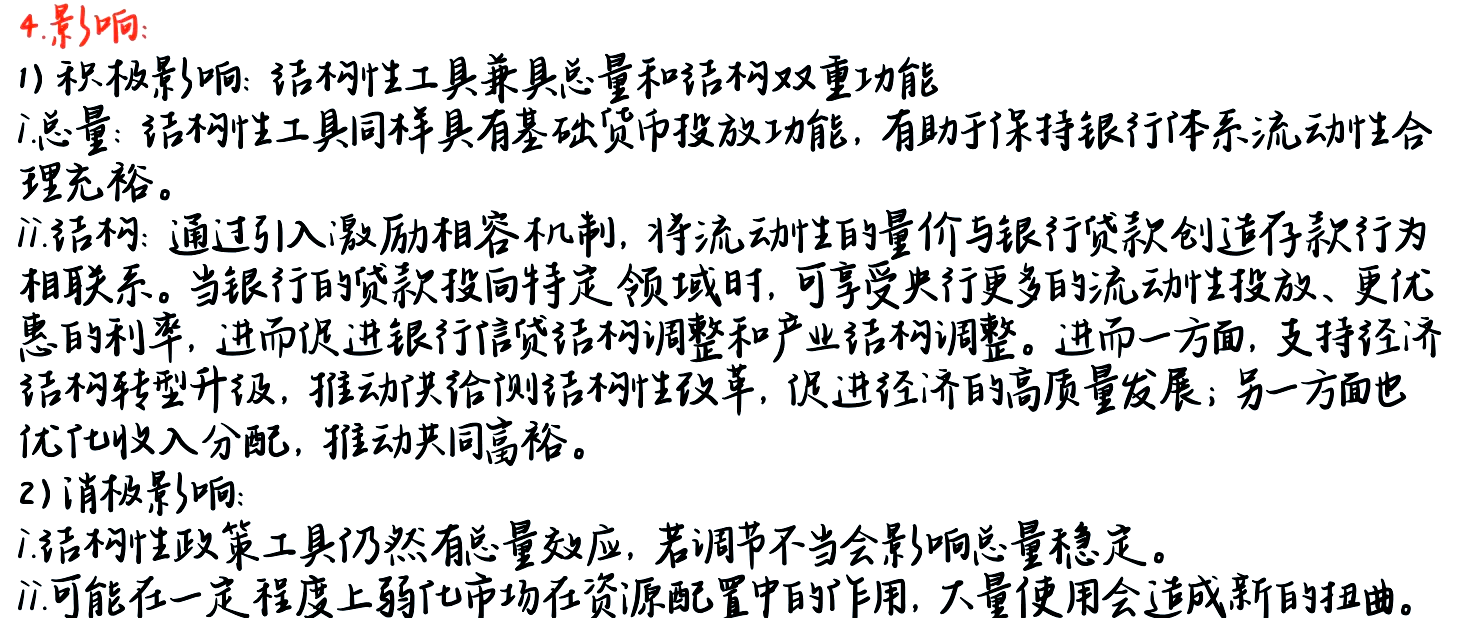 4.影响:
1) 积极影响: 结构性工具兼具总量和结构双重功能
i.总量: 结构性工具同样具有基础货币投放功能, 有助于保持银行体系流动性合
理充裕。
ii.结构: 通过引入激励相容机制, 将流动性的量价与银行贷款创造存款行为
相联系。当银行的贷款投向特定领域时, 可享受央行更多的流动性投放、更优
惠的利率, 进而促进银行信贷结构调整和产业结构调整。进而一方面, 支持经济
结构转型升级, 推动供给侧结构性改革, 促进经济的高质量发展; 另一方面也
优化收入分配, 推动共同富裕。
2) 消极影响:
i.结构性政策工具仍然有总量效应, 若调节不当会影响总量稳定。
ii.可能在一定程度上弱化市场在资源配置中的作用, 大量使用会造成新的扭曲。